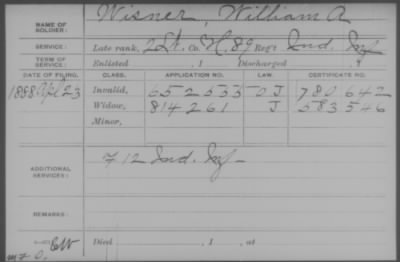 NAME OF SOLDIER: Wisner, William A
SERVICE: Late rank, 2 Lt. Co. H. 89 Reg't Ind. Inf
TERM OF SERVICE: Enlisted , 1 Discharged , 1
DATE OF FILING. CLASS. APPLICATION NO. LAW. CERTIFICATE NO.
1888 Apl 23 Invalid, 652533 O J 780642
Widow, 814261 J 583546
Minor,
ADDITIONAL SERVICES: F 12 Ind. Inf
REMARKS:
Died , 1 , at